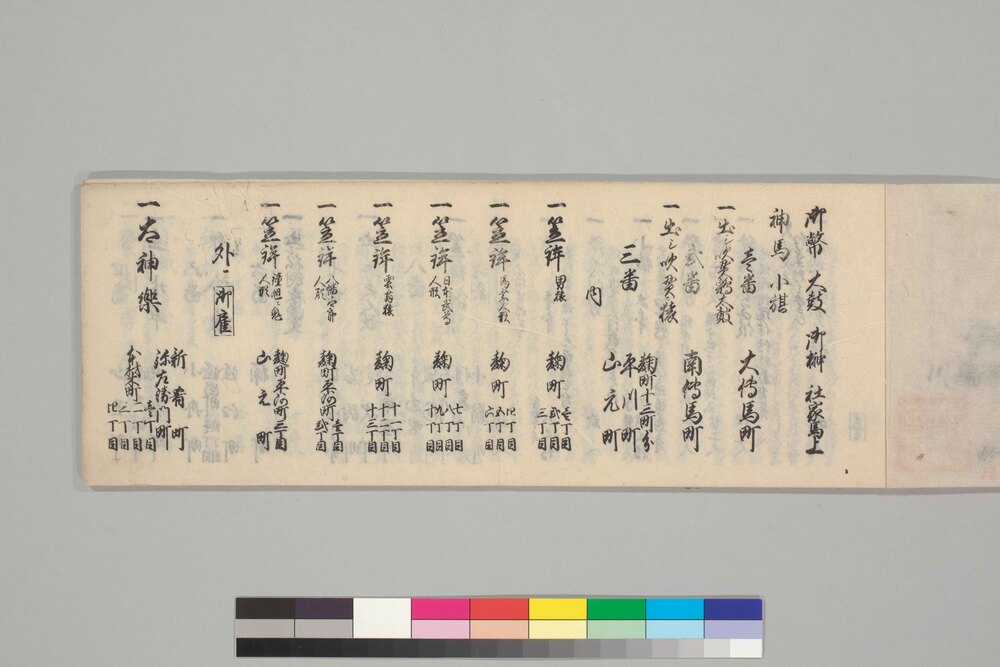 御幣 大鼓 御榊 社家馬上
神馬 小旗
壱番
一 出シ吹貫鶏太鼓 大傳馬町
弐番
一 出シ吹貫猿 南傳馬町
三番 麹町十三町分 平川町 山元町
内
一 笠鉾 男猿 麹町 壱丁目 弐丁目 三丁目
一 笠鉾 人形 麹町 四丁目 五丁目 六丁目
一 笠鉾 日本武尊人形 麹町 七丁目 八丁目 九丁目 十丁目
一 笠鉾 麹町 十一丁目 十二丁目 十三丁目
一 笠鉾 人形 麹町平河町 壱丁目 弐丁目
一 笠鉾 人形 麹町平河町三丁目 山元町
外ニ 御雇
一 太神楽 新肴町 弥左衛門町 本材木町 壱丁目 二丁目 三丁目 四丁目